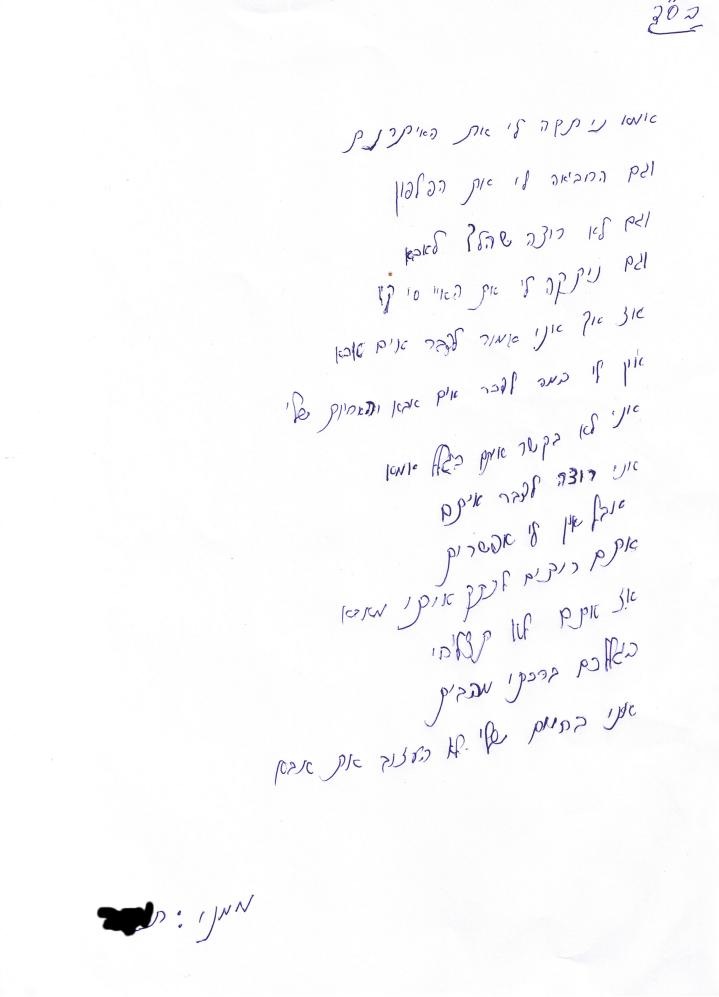 בס"ד
אמא ניתקה לי את האיתרנת
וגם הרביאה לי את הפלפון
וגם לא רוצה שהלך לאבא
וגם ניתקה לי את האיי סי קץ
אז איך אני אמור לדבר אים אבא
אין לי במה לדבר אים אבא והאחיות שלי
אני לא בקשר איתם בגלל אמא
אני רוצה לדבר איתם
אבל אין לי אפשרות
אתם רוצים לנתק אותי מאבא
אז אתם לא תצליחי
בגללכם ברכתי מהבית
אני בחיים שלי לא העזוב את אבא
ממני :